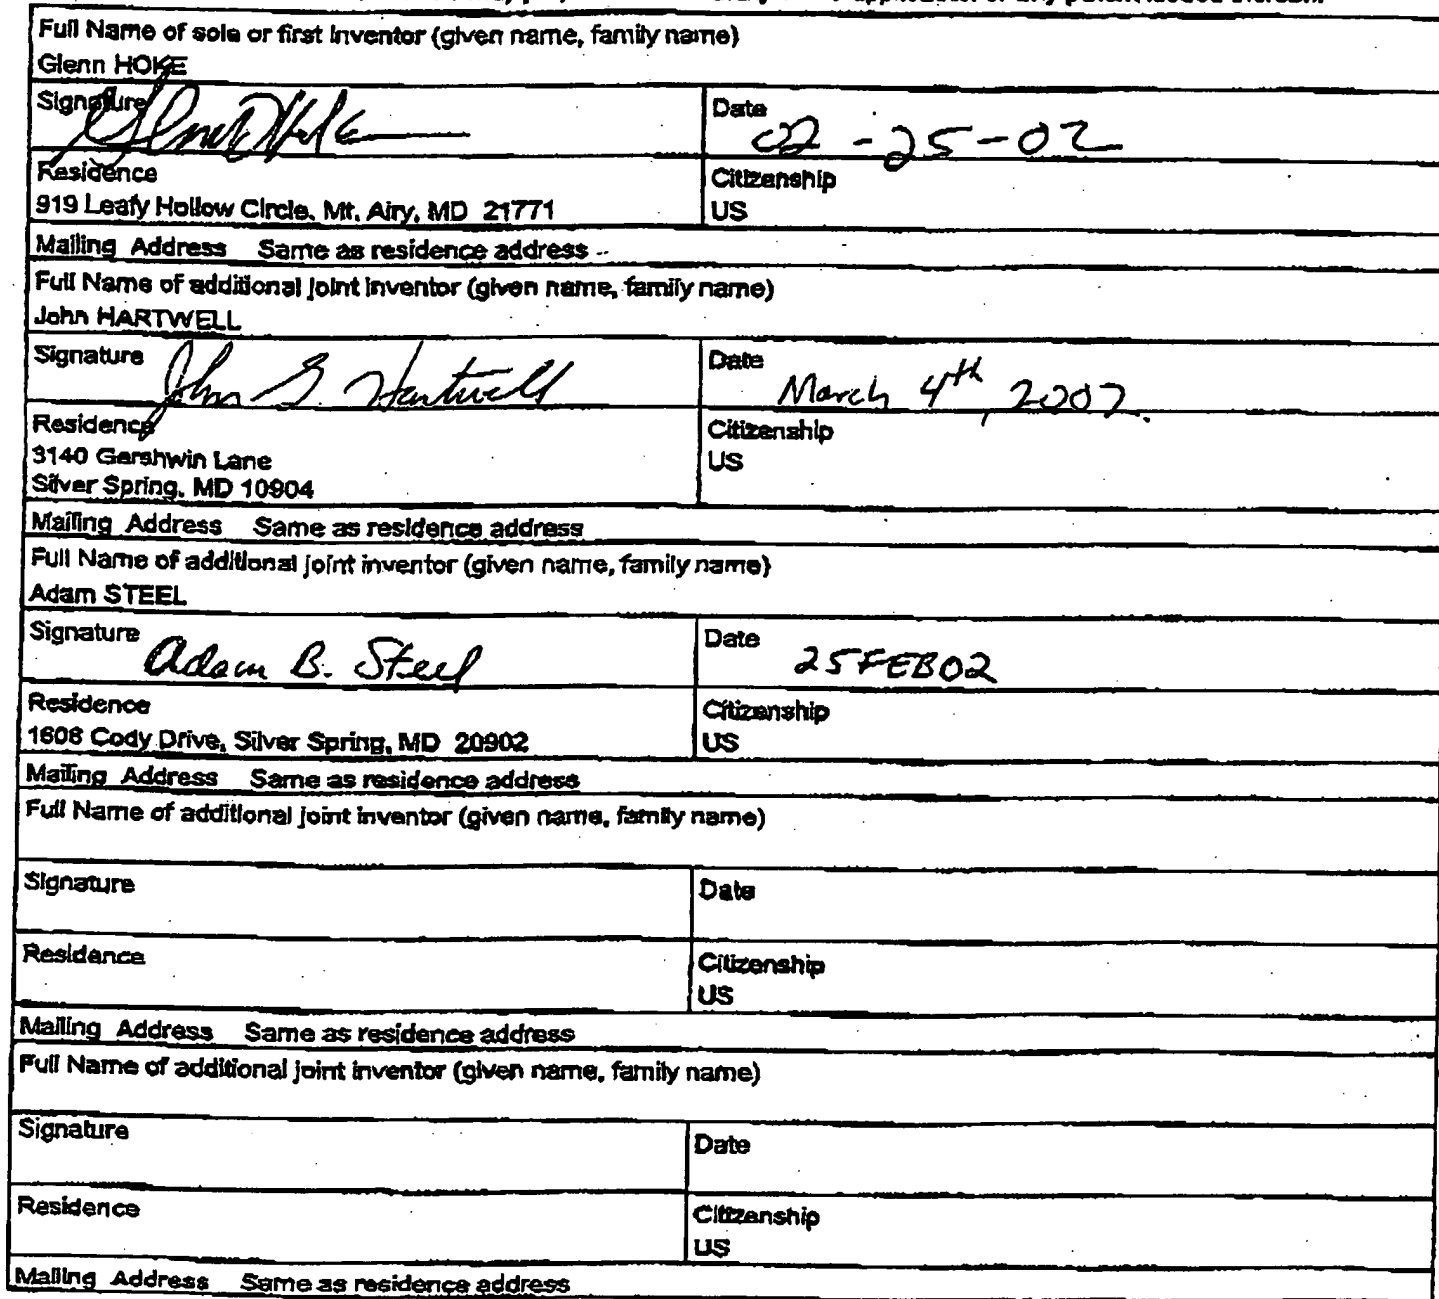 Full Name of sole or first inventor (given name, family name)
Glenn HOKE
Signature
Date 02-25-02
Residence
919 Leafy Hollow Circle, Mt. Airy, MD 21771
Citizenship
US
Mailing Address Same as residence address
Full Name of additional joint inventor (given name, family name)
John HARTWELL
Signature John G. Hartwell
Date March 4th, 2002.
Residence
3140 Gershwin Lane
Silver Spring, MD 10904
Citizenship
US
Mailing Address Same as residence address
Full Name of additional joint inventor (given name, family name)
Adam STEEL
Signature Adam B. Steel
Date 25FEB02
Residence
1608 Cody Drive, Silver Spring, MD 20902
Citizenship
US
Mailing Address Same as residence address
Full Name of additional joint inventor (given name, family name)
Signature
Date
Residence
Citizenship
US
Mailing Address Same as residence address
Full Name of additional joint inventor (given name, family name)
Signature
Date
Residence
Citizenship
US
Mailing Address Same as residence address